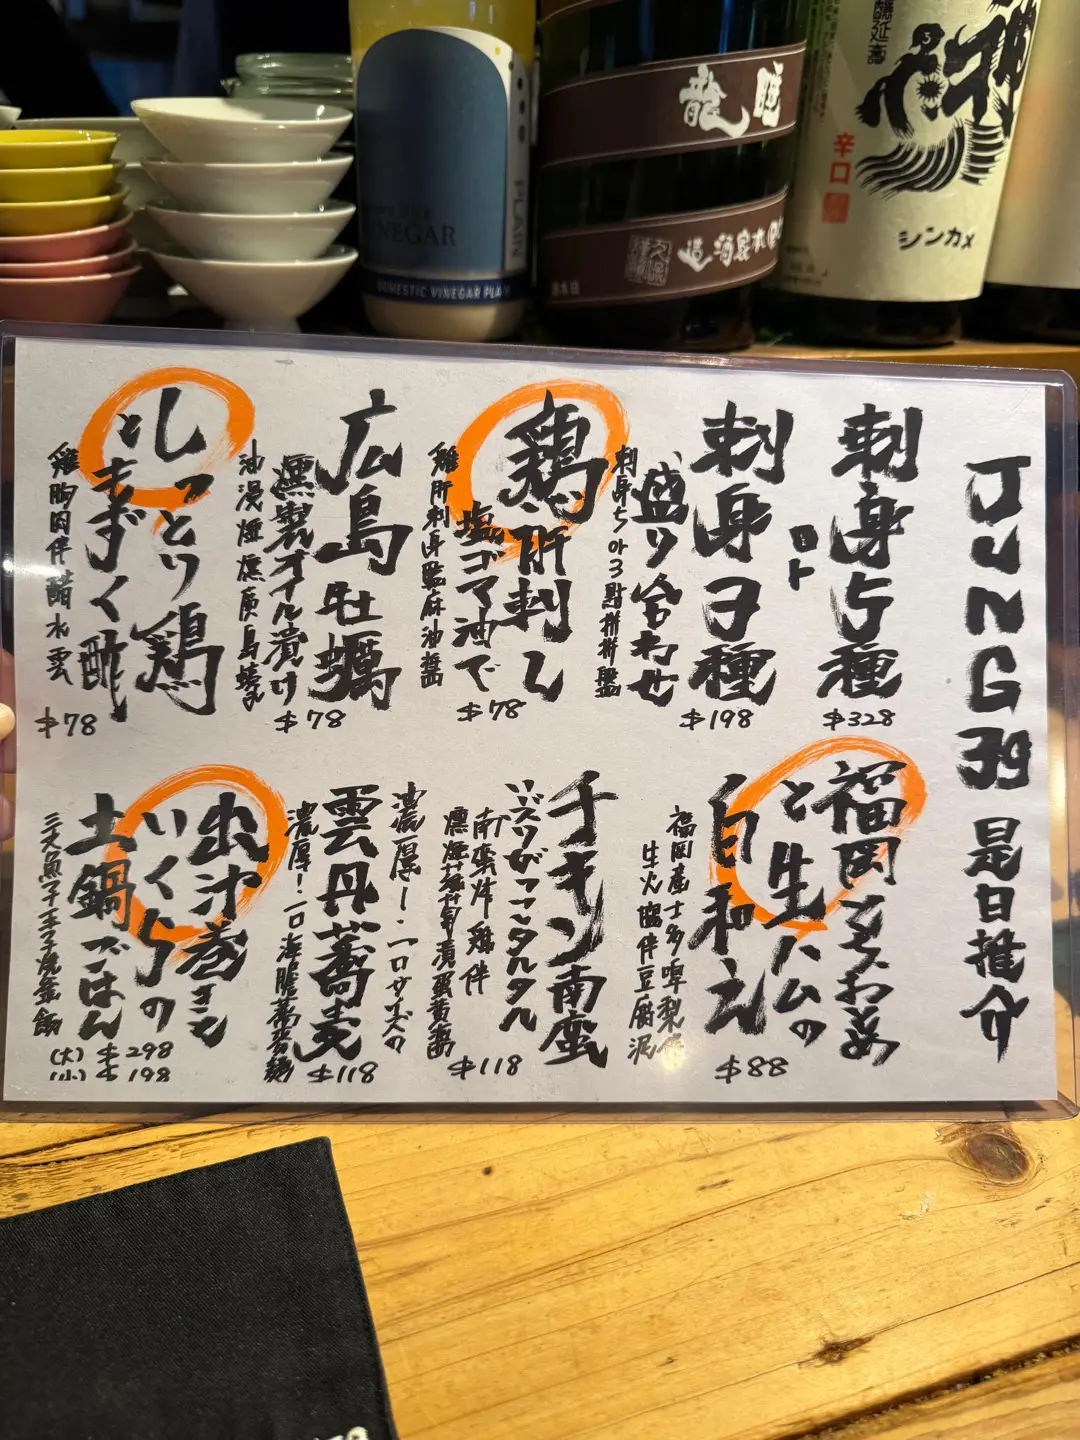 龍
瞳
造酒家本
PLAIN
VINEGAR
DOMESTIC VINEGAR PLAIN
辛口
シンカメ
JUNG39 是日推介
刺身5種
or
刺身3種
盛り合わせ
刺身5 or 3點拼拼盤
$328
$198
鶏肝刺し
塩ゴマ油で
雞肝刺身鹽麻油醬
$78
広島牡蠣
燻製オイル漬け
油浸煙燻廣島蠔
$78
しっとり鶏
ともずく酢
雞胸肉伴醋水雲
$78
福岡とよみつひめ
と生ハムの
白和え
生火腿伴豆腐泥
$88
チキン南蛮
いぶりがっこタルタル
南蠻炸雞伴
$118
濃厚!一口サイズの
雲丹蕎麦
濃厚!一口海膽蕎麥麵
$118
出汁巻きと
いくらの
土鍋ごはん
三文魚子玉子燒釜飯
(大) $298
(小) $198